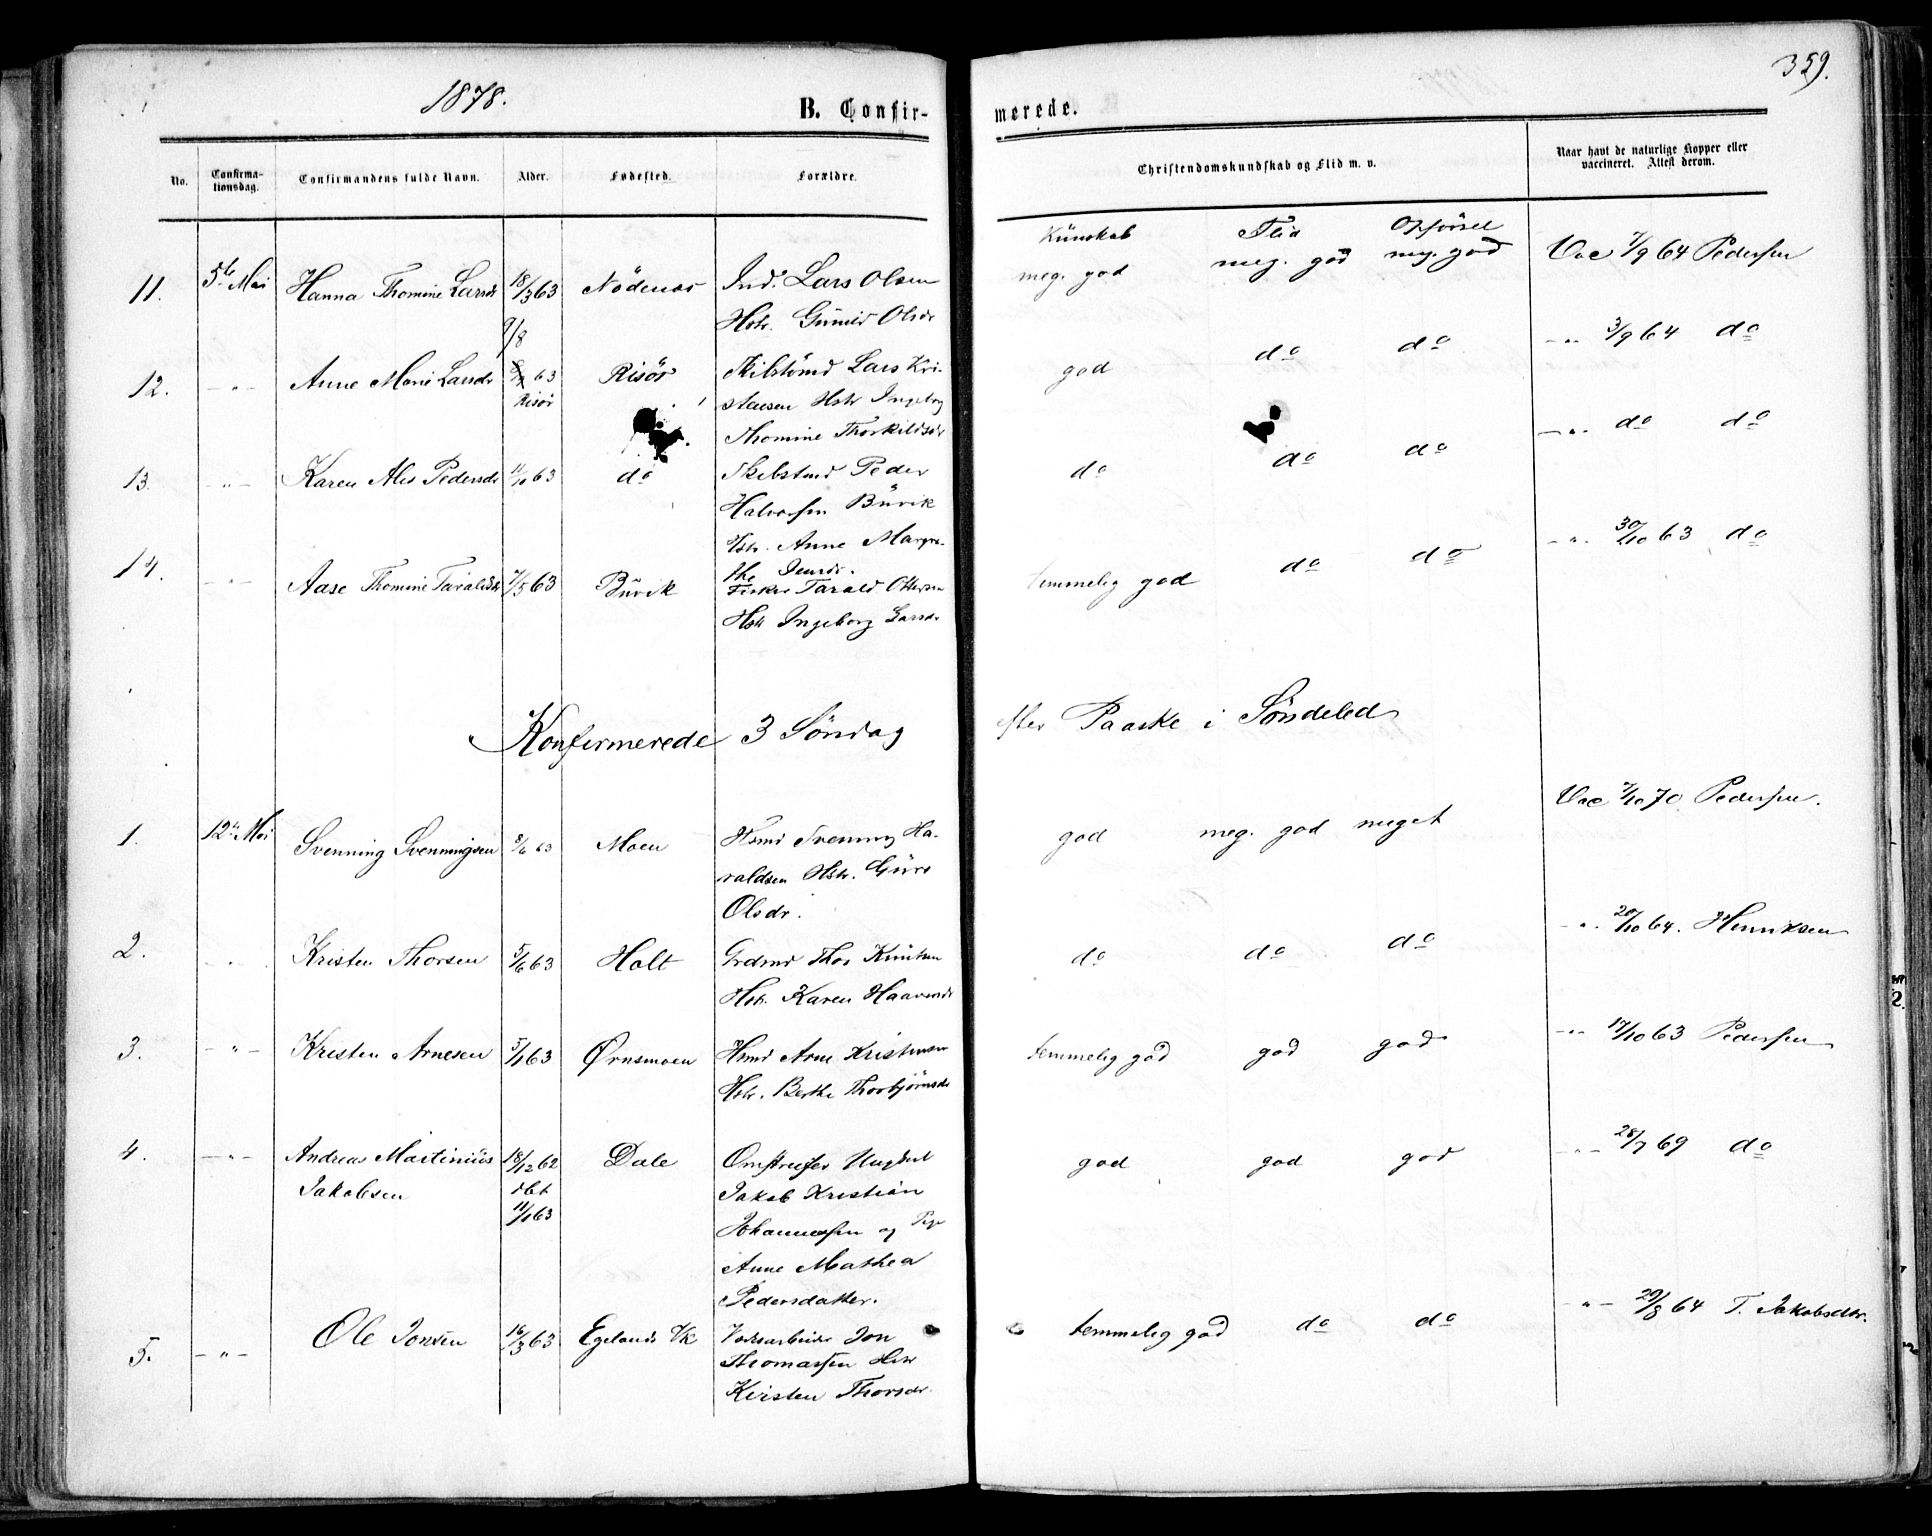 1878.
359.
B. Confir-
merede.
No.
Confirma-
tionsdag.
Confirmandens fulde Navn.
Alder.
Fødested.
Forældre.
Christendomskundskab og Flid m. v.
Naar havt de naturlige Kopper eller
vaccineret. Attest derom.
Kundskab Flid Opförsel
11. 5te Mai Hanna Thomine Larsdr 18/3 63 Nödenæs Ind. Lars Olsen meg. god meg. god meg. god Vac 7/9 64 Pedersen
Hstr. Gunild Olsdr
9/8
12. -"- Anne Marie Larsdr 63 Risör Skibstömd Lars Kri- god do do -"- 3/9 64 do
Risör stensen Hstr Ingeborg
Thomine Thorkildsdr
13. -"- Karen Alis Pedersdr 11/10 63 do Skibstmd Peder do do do -"- do do
Halvorsen Büvik
Hstr. Anne Margre-
the Jensdr.
14. -"- Aase Thomine Taraldsdr 7/5 63 Büvik Fisker Tarald Ottersen temmelig god do do -"- 30/10 63 do
Hstr Ingeborg Larsdr
Konfirmerede 3 Söndag efter Paaske i Söndeled
1. 12te Mai Svenning Svenningsen 8/6 63 Moen Hsmd Svenning Ha- god meg. god meget Vac 7/10 70 Pedersen.
raldsen Hstr. Guro
Olsdr.
2. -"- Kristen Thorsen 5/6 63 Holt Grdmd Thor Knutsen do do do -"- 20/10 64. Henriksen
Hstr. Karen Haavorsdr
3. -"- Kristen Arnesen 5/1 63 Ørnsmoen Hsmd Arne Kristensen temmelig god god god -"- 17/10 63 Pedersen
Hstr. Berthe Thorbjörnsdr
4. -"- Andreas Martinius 18/12 62 Dale Omstreifer Ungkarl god god god -"- 28/7 69 do
Jakobsen dbt Jakob Kristian
11/1 63 Johannessen og Pige
Anne Mathea
Pedersdatter.
5. -"- Ole Jonsen 16/3 63 Egelands Vk Verksarbeider Jon temmelig god do do -"- 29/8 64 T. Jakobsdtr.
Thomassen Hstr
Kirsten Thorsdr.